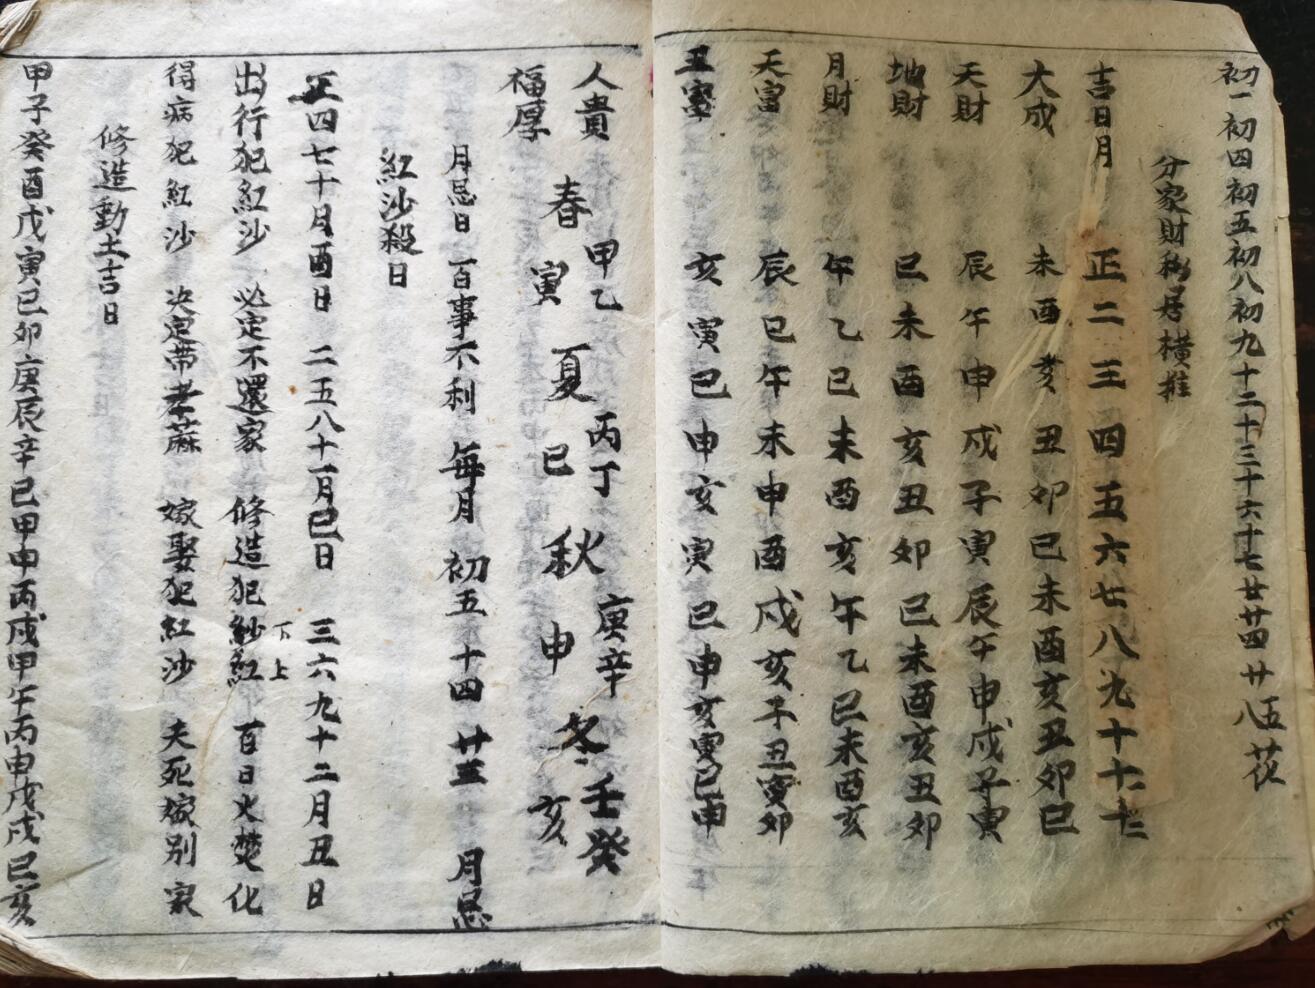 初一初四初五初八初九十二十三十六十七廿廿四廿五八花
分家財橫推
吉日月 正二三四五六七八九十十一十二
大成 未酉亥丑卯巳未酉亥丑卯巳
天財 辰午申戌子寅辰午申戌子寅
地財 巳未酉亥丑卯巳未酉亥丑卯
月財 午乙巳未酉亥午乙巳未酉亥
天富 辰巳午未申酉戌亥子丑寅卯
亥寅巳申亥寅巳申亥寅巳申
人貴 甲乙 丙丁 庚辛 壬癸
福厚 春寅夏巳秋申冬亥
月忌日 百事不利 每月 初五十四廿三 月忌
紅沙殺日
正四七十月酉日 二五八十一月巳日 三六九十二月丑日
出行犯紅沙 必定不還家 修造犯紗紅 下上 百日火焚化
得病犯紅沙 決定帶孝蔴 嫁娶犯紅沙 夫死嫁別家
修造動土吉日
甲子癸酉戊寅巳卯庚辰辛巳甲申丙戌甲午丙申戊戌巳亥